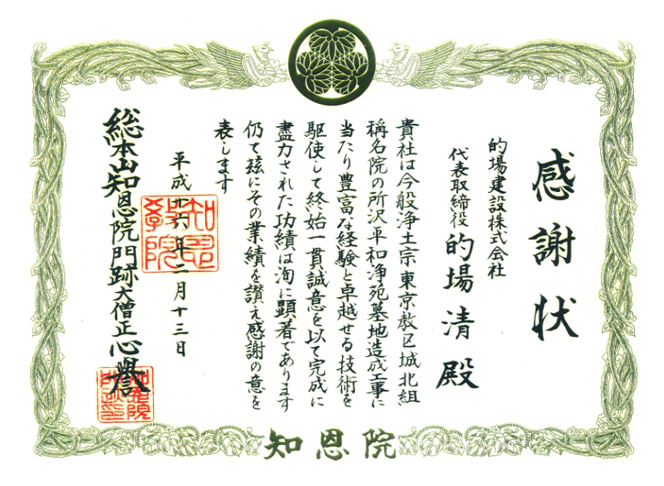 感謝状
的場建設株式会社
代表取締役 的場 清 殿
貴社は今般浄土宗東京教区城北組
稱名院の所沢平和浄苑墓地造成工事に
当たり豊富な経験と卓越せる技術を
駆使して終始一貫誠意を以て完成に
盡力された功績は洵に顕著であります
仍て茲にその業績を讃え感謝の意を
表します
平成廿六年二月十三日
総本山知恩院門跡大僧正心譽
知恩院